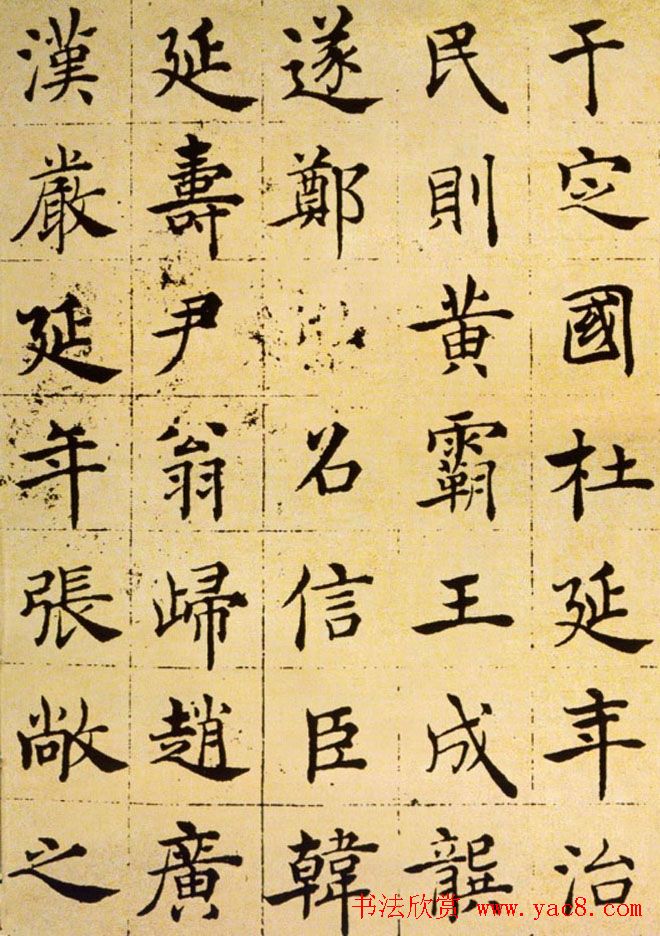 于定國杜延年治
民則黃霸王成龔
遂鄭召信臣韓
延壽尹翁歸趙廣
漢嚴延年張敞之
书法欣赏 www.yac8.com